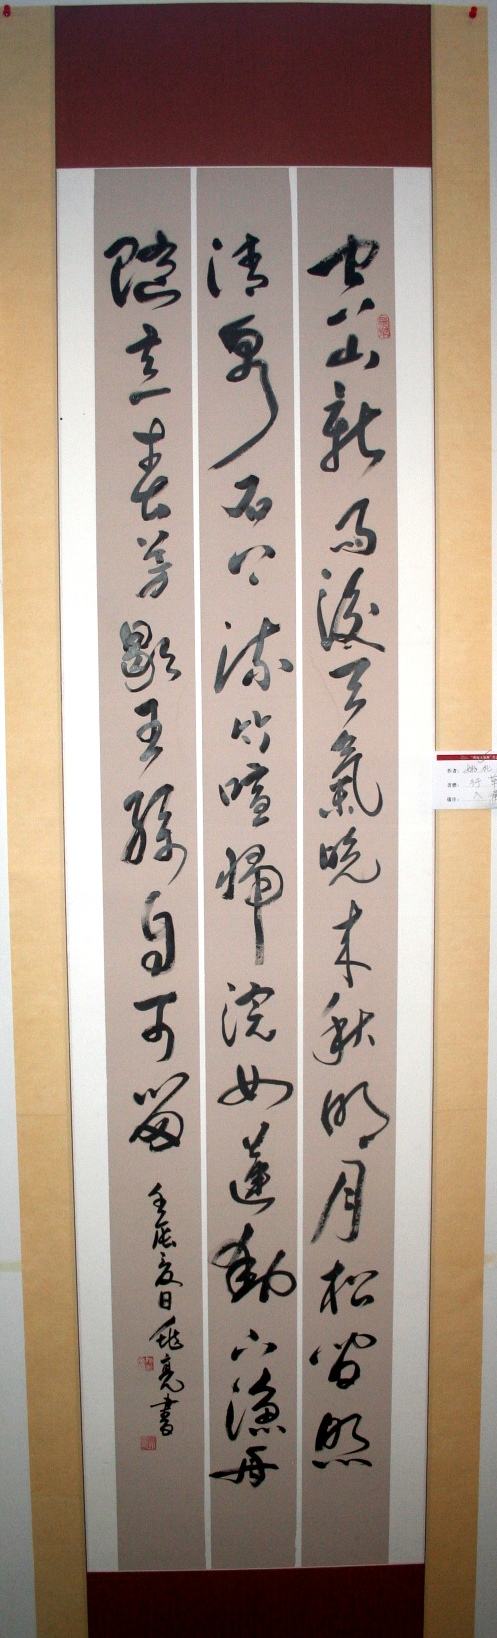 空山新雨後天氣晚来秋明月松間照
清泉石上流竹喧歸浣女蓮動下漁舟
隨意春芳歇王孫自可留
壬辰夏日 亮書
作者：
行草
入